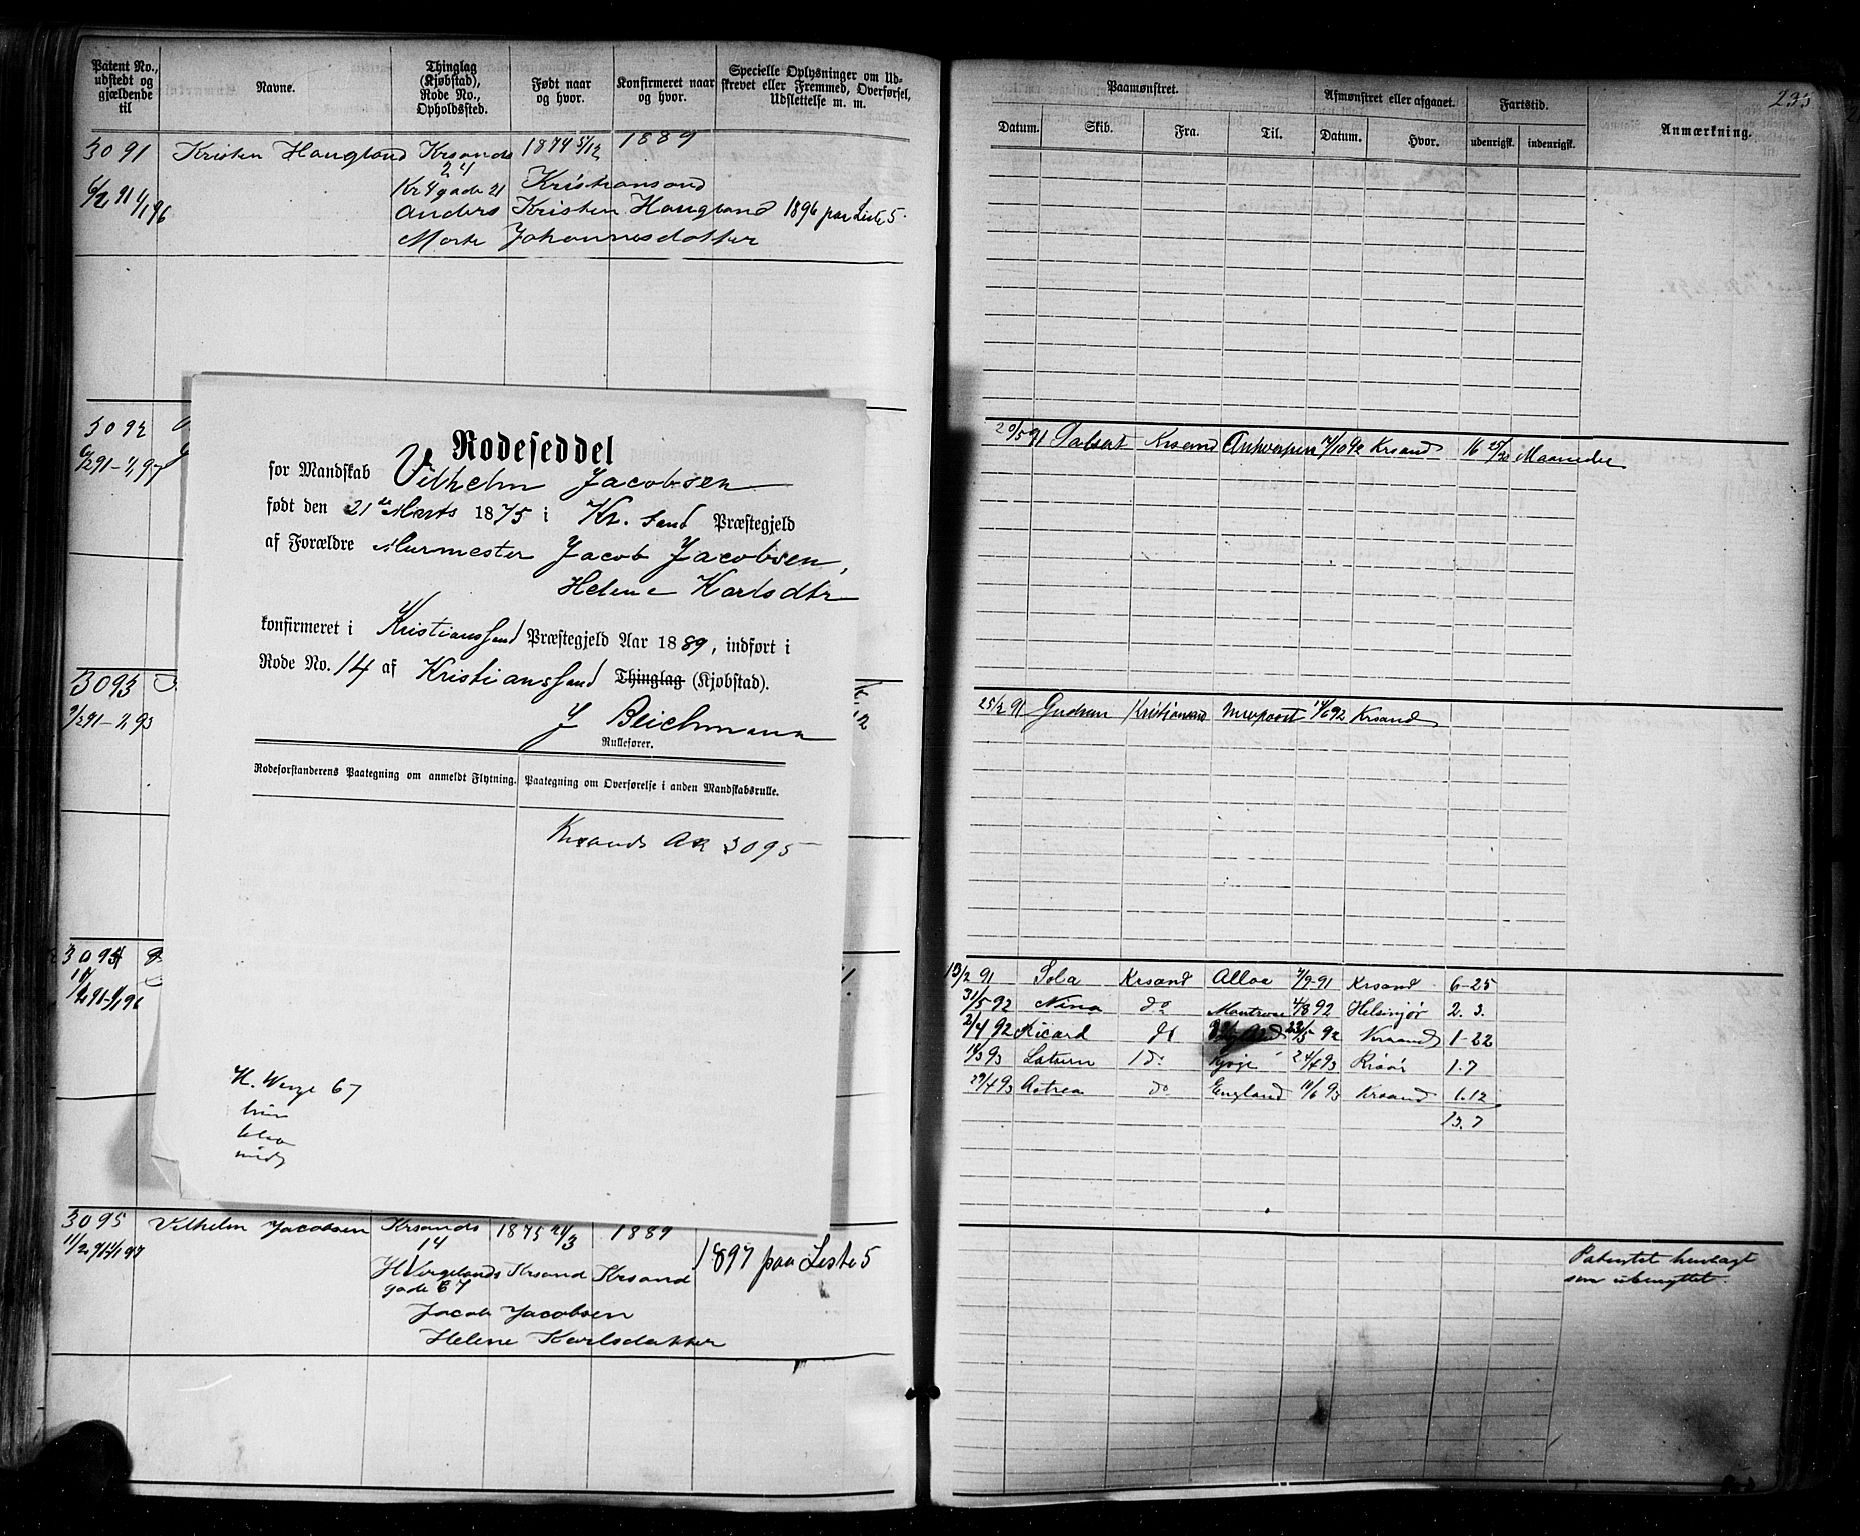 Patent No., udstedt og gjældende til
Navne.
Thinglag (Kjøbstad), Rode No., Opholdssted.
Født naar og hvor.
Konfirmeret naar og hvor.
Specielle Oplysninger om Udskrevet eller Fremmed, Overførsel, Udslettelse m. m.
3091 Kristen Haugland Krsands 1874 5/12 1889
24
6/2 91 1/1 96 Kr 4 gade 21 Kristiansand
Anders Kristen Haugland 1896 paa Liste 5.
Johannesdatter
3092
6/2 91 - 1/1 97
3093
9/2 91 - 1/1 93
3094
Rodeseddel
for Mandskab Vilhelm Jacobsen
født den 21de Marts 1875 i Kr.sand Præstegjeld
af Forældre Murmester Jacob Jacobsen,
Helene Karlsdtr
konfirmeret i Kristianssand Præstegjeld Aar 1889, indført i
Rode No. 14 af Kristianssand Thinglag (Kjøbstad).
J Beichmann
Rullefører.
Rodeforstanderens Paategning om anmeldt Flytning.
Paategning om Overførelse i anden Mandskabsrulle.
Krsands AR 3095
H. Werge 67
3095 Vilhelm Jacobsen Krsands 1875 21/3 1889
14
H Vergelands Krsand Krsand 1897 paa Liste 5
gade 67
Jacob Jacobsen
Helene Karlsdatter
233
Paamønstret.
Afmønstret eller afgaaet.
Fartstid.
Anmærkning.
Datum. Skib. Fra. Til. Datum. Hvor. udenrigsk. indenrigsk.
20/5 91 Krsand Antwerpen 14/10 92 Krsand 16 25/30 Maaneder
25/2 91 Gudrun Kristiansand 14/6 92 Krsand
13/2 91 Sola Krsand Alloa 7/9 91 Krsand 6-25
31/5 92 Nina do Montrose 4/8 92 Helsinjør 2. 3.
2/4 92 Ricard 23/5 92 Krsand 1-22
do 24/4 93 Risør 1.7
29/4 93 Astrea do England 11/6 93 Krsand 1.12
13.7
Patentet
som ubenyttet.